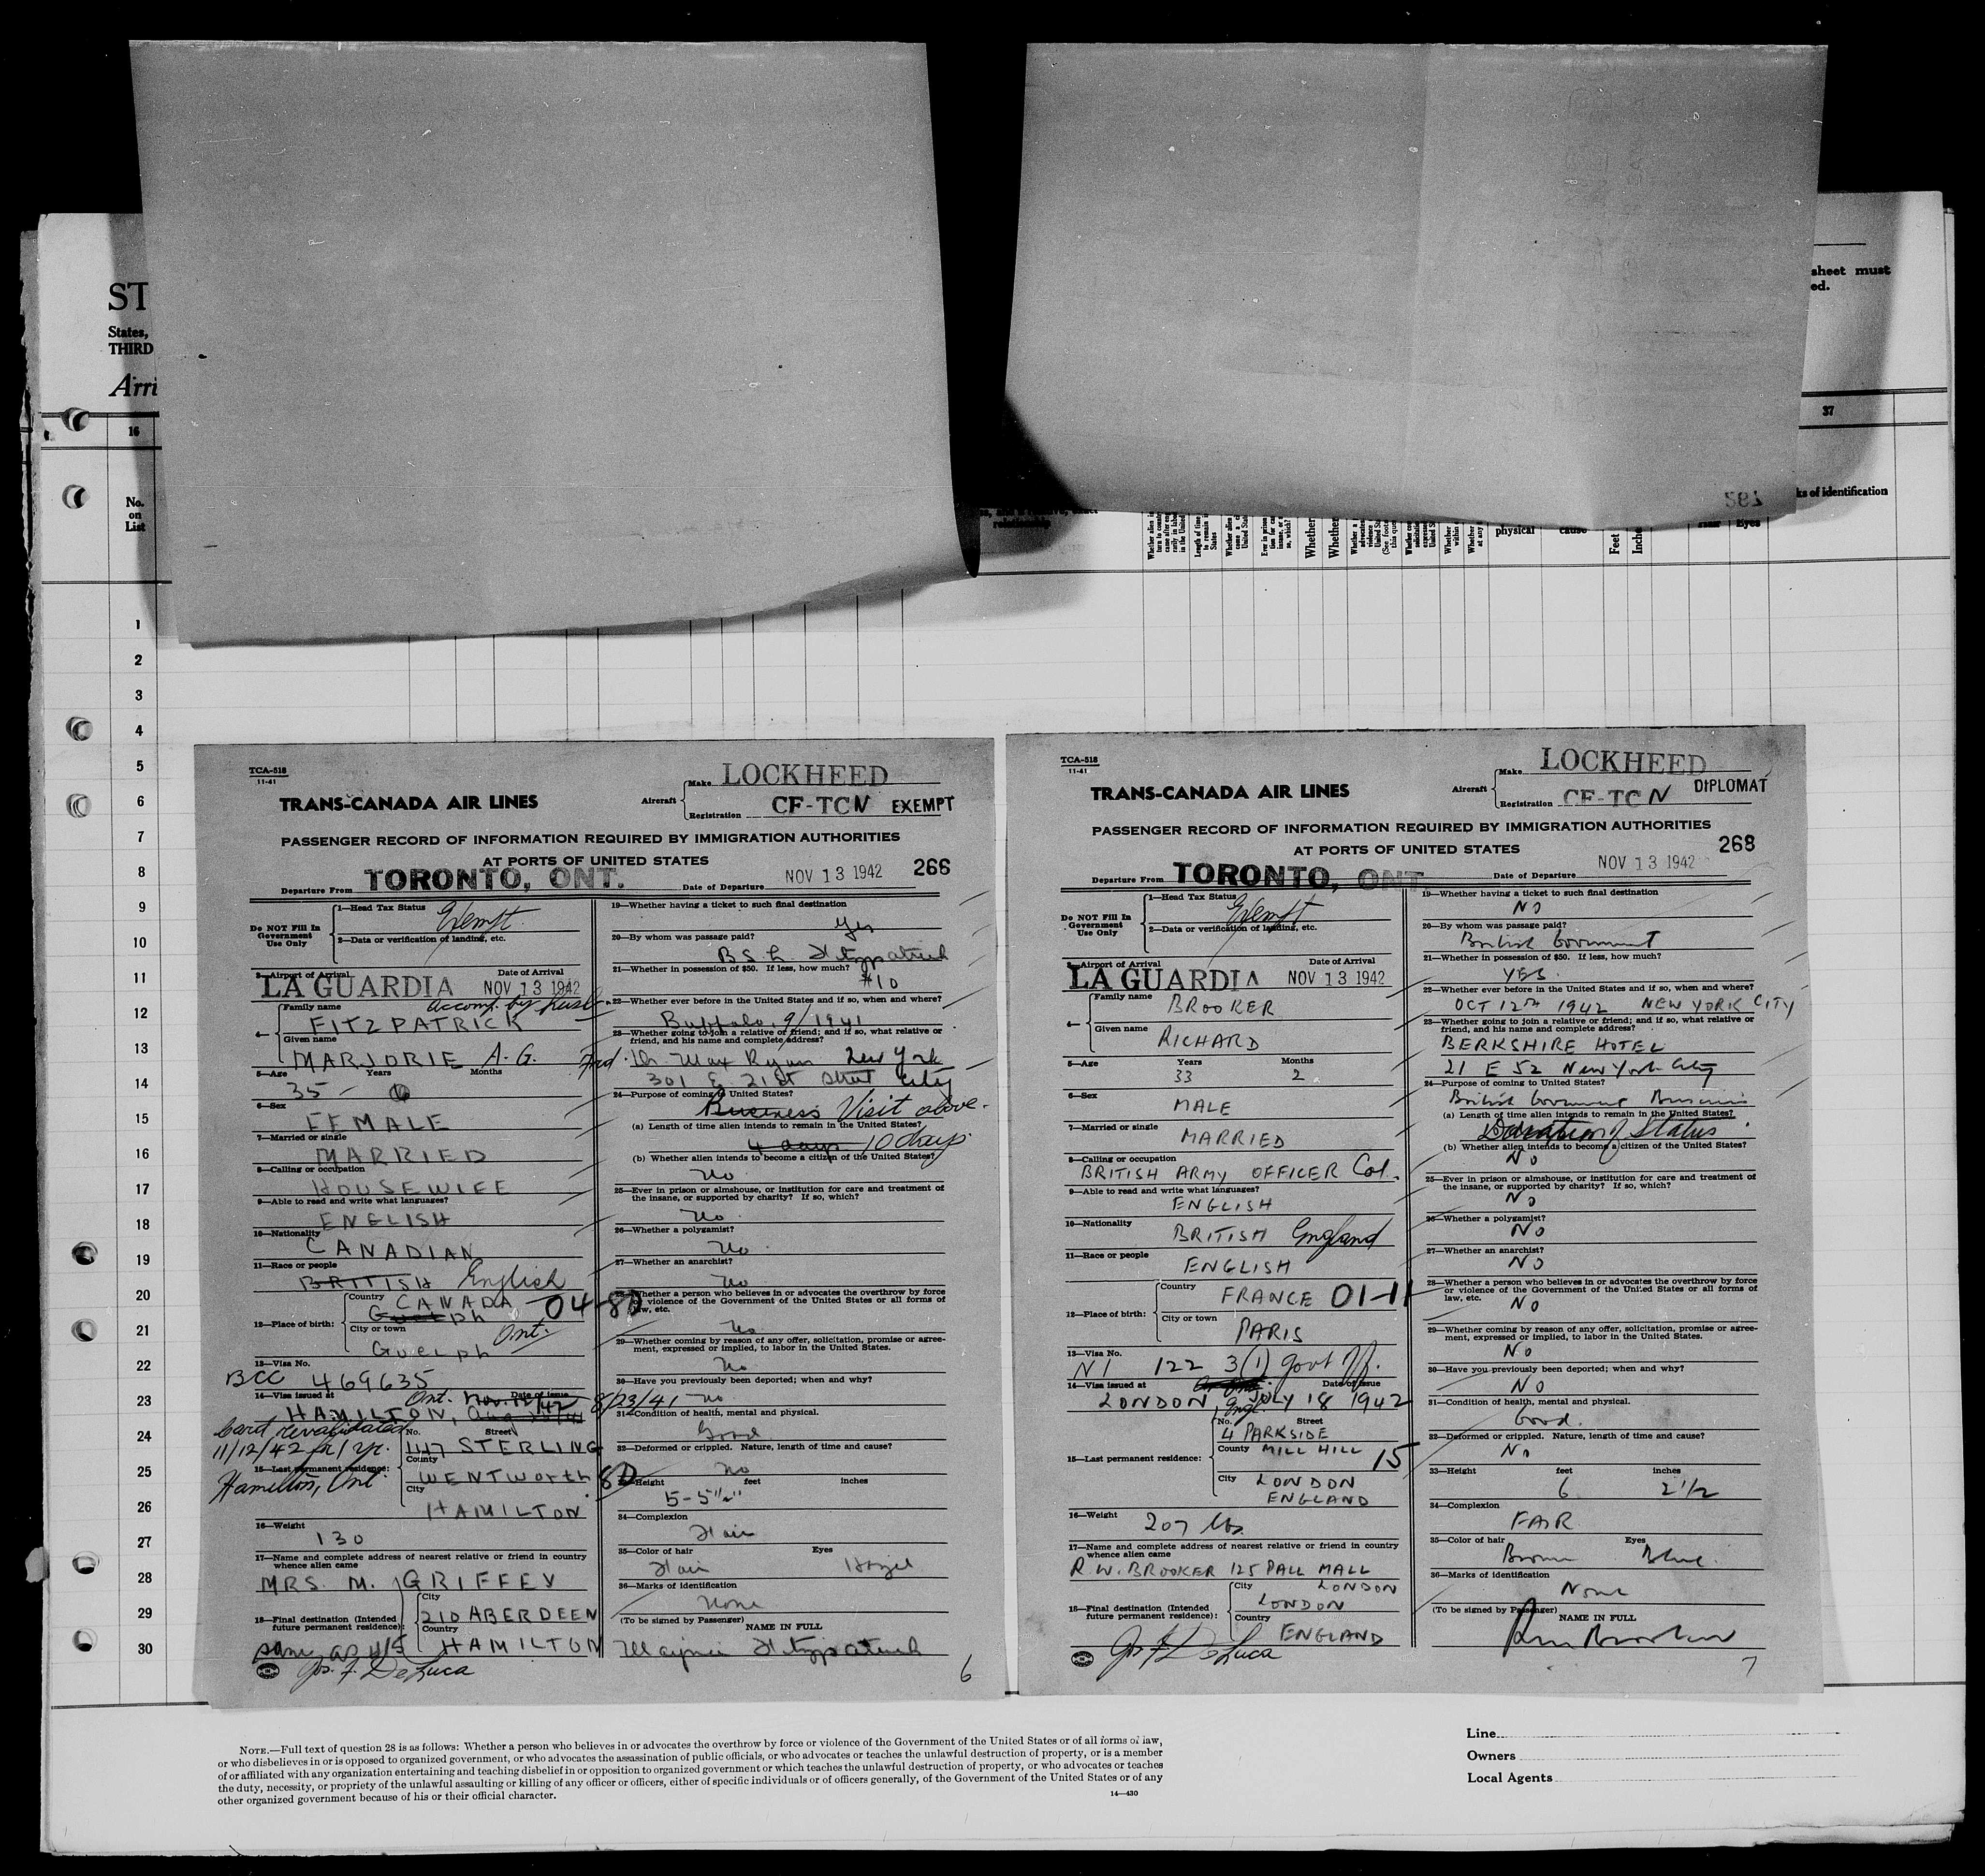 ST
States,
THIRD
Arri
sheet must
ed.
16
37
No.
on
List
ks of identification
physical
cause
Feet
Eyes
1
2
3
4
5
6
7
8
9
10
11
12
13
14
15
16
17
18
19
20
21
22
23
24
25
26
27
28
29
30
TCA-518
11-41
TRANS-CANADA AIR LINES
Aircraft
Make LOCKHEED
Registration CF-TCN EXEMPT
PASSENGER RECORD OF INFORMATION REQUIRED BY IMMIGRATION AUTHORITIES
AT PORTS OF UNITED STATES
266
Departure From TORONTO, ONT. Date of Departure NOV 13 1942
Do NOT Fill In
Government
Use Only
1—Head Tax Status Exempt
2—Data or verification of landing, etc.
3—Airport of Arrival Date of Arrival
LA GUARDIA NOV 13 1942
accomp. by husb.
4— Family name
FITZPATRICK
Given name
MARJORIE A. G.
5—Age Years Months
35 -
6—Sex
FEMALE
7—Married or single
MARRIED
8—Calling or occupation
HOUSEWIFE
9—Able to read and write what languages?
ENGLISH
10—Nationality
CANADIAN
11—Race or people
BRITISH English
12—Place of birth:
Country
CANADA 04-8D
Guelph
City or town Ont.
Guelph
13—Visa No.
BCC 469635
14—Visa issued at Date of issue
Ont. Nov. 12/42 8/23/41
HAMILTON,
Card revalidated
11/12/42 for 1 yr.
Hamilton, Ont
15—Last permanent residence:
No. Street
147 STERLING
County
WENTWORTH 8D
City
HAMILTON
16—Weight
130
17—Name and complete address of nearest relative or friend in country
whence alien came
MRS. M. GRIFFEY
18—Final destination (Intended
future permanent residence):
same as #15
City
210 ABERDEEN
Country
HAMILTON
Jos. F. DeLuca
19—Whether having a ticket to such final destination
Yes
20—By whom was passage paid?
B.S.L. Fitzpatrick
21—Whether in possession of $50. If less, how much?
$10
22—Whether ever before in the United States and if so, when and where?
Buffalo, 9/1941
23—Whether going to join a relative or friend; and if so, what relative or
friend, and his name and complete address?
Frd. Dr. Max Ryan New York
301 E 21st Street City
24—Purpose of coming to United States?
Business Visit above.
(a) Length of time alien intends to remain in the United States?
4 days 10 days.
(b) Whether alien intends to become a citizen of the United States?
No
25—Ever in prison or almshouse, or institution for care and treatment of
the insane, or supported by charity? If so, which?
No
26—Whether a polygamist?
No
27—Whether an anarchist?
No
28—Whether a person who believes in or advocates the overthrow by force
or violence of the Government of the United States or all forms of
law, etc.
No
29—Whether coming by reason of any offer, solicitation, promise or agree-
ment, expressed or implied, to labor in the United States.
No
30—Have you previously been deported; when and why?
No
31—Condition of health, mental and physical.
Good
32—Deformed or crippled. Nature, length of time and cause?
No
33—Height feet inches
5-5½"
34—Complexion
Fair
35—Color of hair Eyes
Fair Hazel
36—Marks of identification
None
(To be signed by Passenger) NAME IN FULL
Marjorie Fitzpatrick
6
TCA-518
11-41
TRANS-CANADA AIR LINES
Aircraft
Make LOCKHEED
Registration CF-TCN DIPLOMAT
PASSENGER RECORD OF INFORMATION REQUIRED BY IMMIGRATION AUTHORITIES
AT PORTS OF UNITED STATES
268
Departure From TORONTO, ONT Date of Departure NOV 13 1942
Do NOT Fill In
Government
Use Only
1—Head Tax Status Exempt
2—Data or verification of landing, etc.
3—Airport of Arrival Date of Arrival
LA GUARDIA NOV 13 1942
4— Family name
BROOKER
Given name
RICHARD
5—Age Years Months
33 2
6—Sex
MALE
7—Married or single
MARRIED
8—Calling or occupation
BRITISH ARMY OFFICER Col.
9—Able to read and write what languages?
ENGLISH
10—Nationality
BRITISH England
11—Race or people
ENGLISH
12—Place of birth:
Country
FRANCE 01-11
City or town
PARIS
13—Visa No.
NI 122 3(1) Govt Off.
14—Visa issued at Date of issue
LONDON, Engl. JULY 18 1942
15—Last permanent residence:
No. Street
4 PARKSIDE
County MILL HILL 15
City LONDON
ENGLAND
16—Weight
207 lbs.
17—Name and complete address of nearest relative or friend in country
whence alien came
R W. BROOKER 125 PALL MALL
LONDON
18—Final destination (Intended
future permanent residence):
City
LONDON
Country
ENGLAND
Jos F. DeLuca
19—Whether having a ticket to such final destination
NO
20—By whom was passage paid?
British Government
21—Whether in possession of $50. If less, how much?
YES.
22—Whether ever before in the United States and if so, when and where?
OCT 12TH 1942 NEW YORK CITY
23—Whether going to join a relative or friend; and if so, what relative or
friend, and his name and complete address?
BERKSHIRE HOTEL
21 E 52 New York City
24—Purpose of coming to United States?
British Government Business
(a) Length of time alien intends to remain in the United States?
Duration of Status
(b) Whether alien intends to become a citizen of the United States?
NO
25—Ever in prison or almshouse, or institution for care and treatment of
the insane, or supported by charity? If so, which?
NO
26—Whether a polygamist?
NO
27—Whether an anarchist?
NO
28—Whether a person who believes in or advocates the overthrow by force
or violence of the Government of the United States or all forms of
law, etc.
NO
29—Whether coming by reason of any offer, solicitation, promise or agree-
ment, expressed or implied, to labor in the United States.
NO
30—Have you previously been deported; when and why?
NO
31—Condition of health, mental and physical.
Good.
32—Deformed or crippled. Nature, length of time and cause?
NO
33—Height feet inches
6 2½
34—Complexion
FAIR
35—Color of hair Eyes
Brown Blue.
36—Marks of identification
None
(To be signed by Passenger)
NAME IN FULL
7
NOTE.—Full text of question 28 is as follows: Whether a person who believes in or advocates the overthrow by force or violence of the Government of the United States or of all forms of law,
or who disbelieves in or is opposed to organized government, or who advocates the assassination of public officials, or who advocates or teaches the unlawful destruction of property, or is a member
of or affiliated with any organization entertaining and teaching disbelief in or opposition to organized government or which teaches the unlawful destruction of property, or who advocates or teaches
the duty, necessity, or propriety of the unlawful assaulting or killing of any officer or officers, either of specific individuals or of officers generally, of the Government of the United States or of any
other organized government because of his or their official character.
14—430
Line
Owners
Local Agents